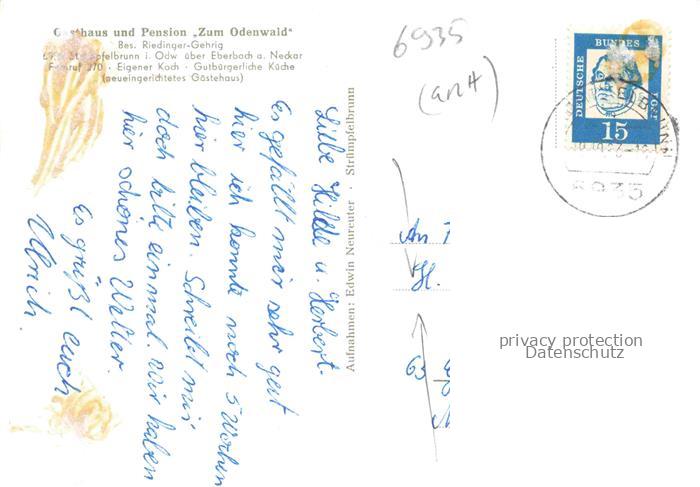 Gasthaus und Pension „Zum Odenwald"
Bes. Riedinger-Gehrig
Strümpfelbrunn i. Odw über Eberbach a. Neckar
Fernruf 370 · Eigener Koch · Gutbürgerliche Küche
(neueingerichtetes Gästehaus)
Liebe Hilde u. Herbert.
Es gefällt mir sehr gut
hier ich könnte noch 5 Wochen
hier bleiben. Schreibt mir
doch bitte einmal. wir haben
hier schönes Wetter.
Es grüßt euch
Ulrich.
Aufnahmen: Edwin Neureuter · Strümpfelbrunn
6935
DEUTSCHE
BUNDES
POST
15
6935
An
H.
privacy protection
Datenschutz